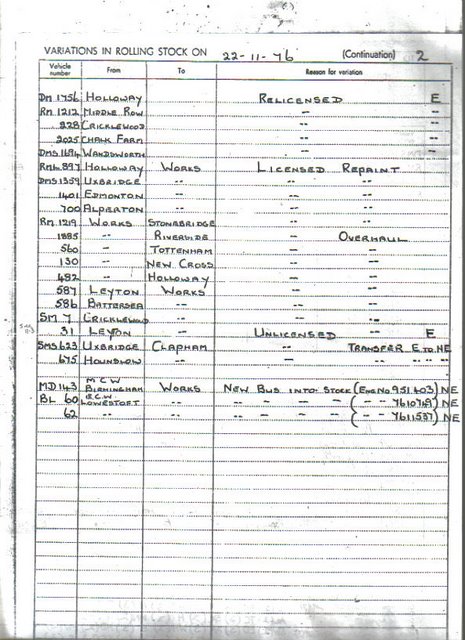 VARIATIONS IN ROLLING STOCK ON 22-11-76 (Continuation) 2
Vehicle number From To Reason for variation
DM 1756 HOLLOWAY RELICENSED E
RM 1212 MIDDLE ROW -- --
228 CRICKLEWOOD -- --
2025 CHALK FARM -- --
DMS 1694 WANDSWORTH -- --
RML 897 HOLLOWAY WORKS LICENSED REPAINT
DMS 1359 UXBRIDGE -- -- --
1401 EDMONTON -- -- --
700 ALPERTON -- -- --
RM 1219 WORKS STONEBRIDGE -- --
1885 -- RIVERSIDE -- OVERHAUL
560 -- TOTTENHAM -- --
130 -- NEW CROSS -- --
482 -- HOLLOWAY -- --
587 LEYTON WORKS -- --
586 BATTERSEA -- -- --
SM 7 CRICKLEWOOD -- -- --
31 LEYTON -- UNLICENSED -- E
SMS 623 UXBRIDGE CLAPHAM -- TRANSFER E TO NE
675 HOUNSLOW -- -- -- -- --
MD 143 M C W BIRMINGHAM WORKS NEW BUS INTO STOCK (ENG NO 951403) NE
BL 60 E.C.W. LOWESTOFT -- -- -- -- -- (-- -- 7610769) NE
62 -- -- -- -- -- -- (-- -- 7611537) NE